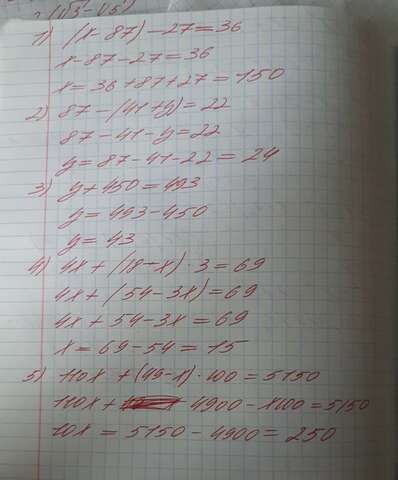 1) (x-87)-27=36
x-87-27=36
x=36+87+27=150
2) 87-(41+y)=22
87-41-y=22
y=87-41-22=24
3) y+450=493
y=493-450
y=43
4) 4x+(18-x)·3=69
4x+(54-3x)=69
4x+54-3x=69
x=69-54=15
5) 110x+(49-x)·100=5150
110x+4900-x100=5150
10x=5150-4900=250